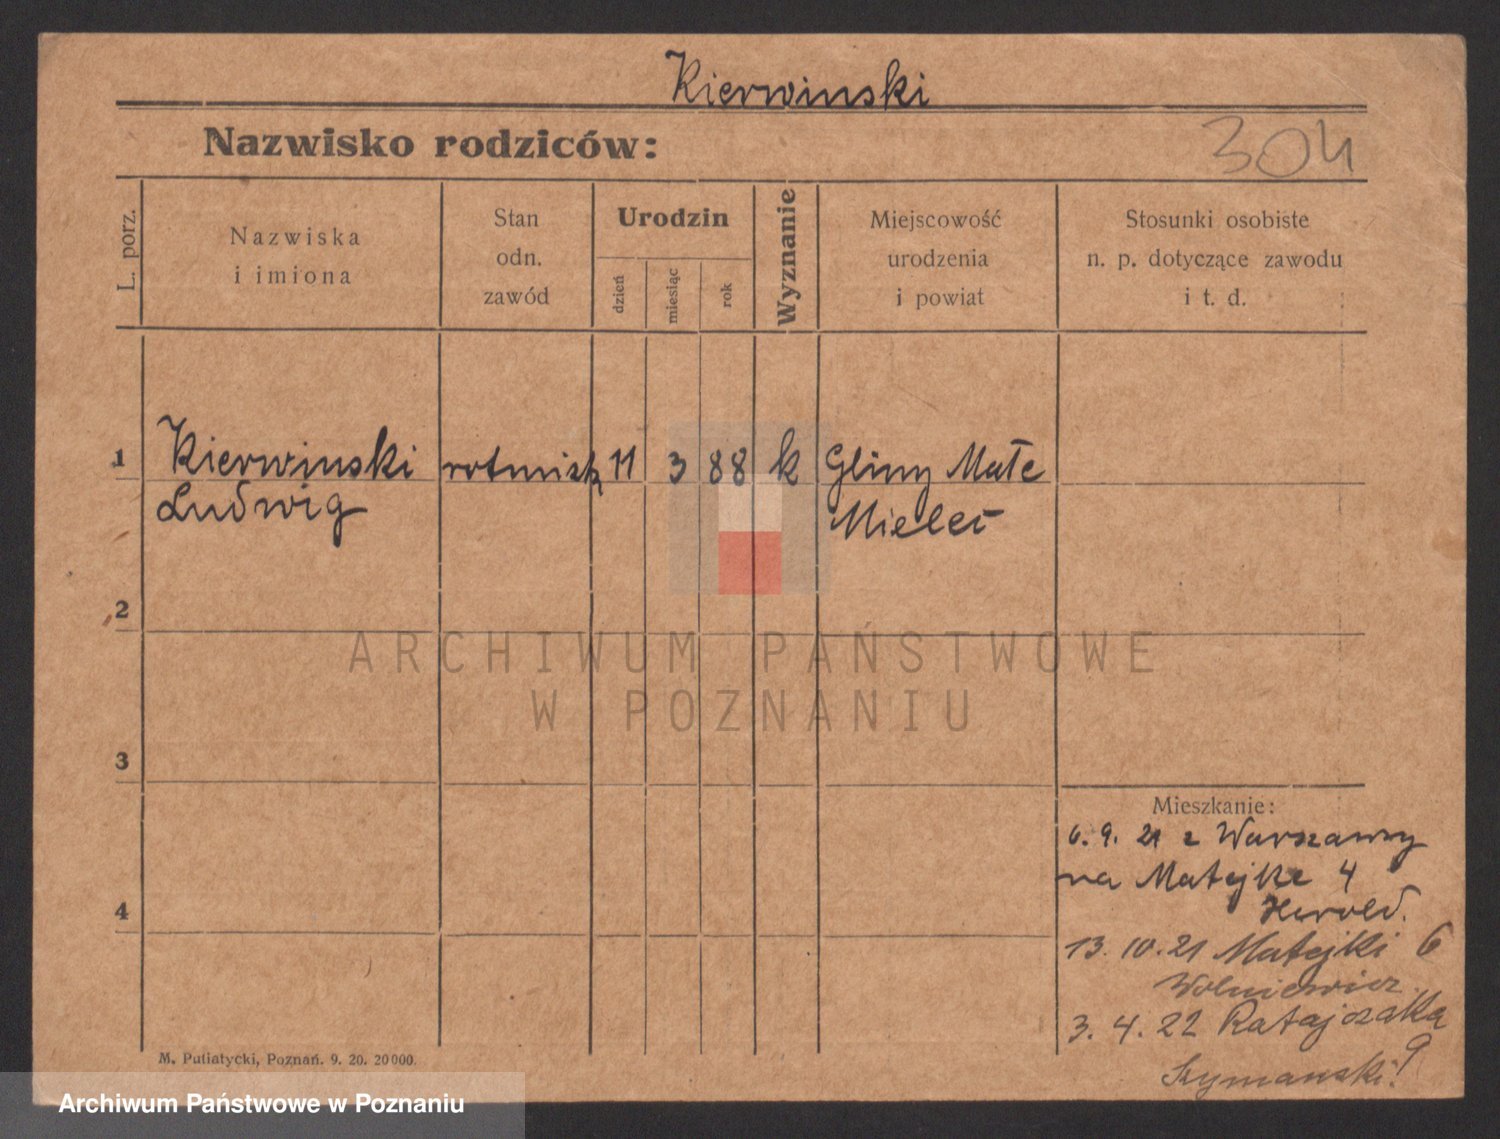 Kierwinski
Nazwisko rodziców:
304
L. porz.
Nazwiska
i imiona
Stan
odn.
zawód
Urodzin
dzień
miesiąc
rok
Wyznanie
Miejscowość
urodzenia
i powiat
Stosunki osobiste
n. p. dotyczące zawodu
i t. d.
1
Kierwinski
Ludwig
rotmistrz
11
3
88
k
Gliny Małe
Mielec
2
3
4
Mieszkanie:
6. 9. 21 z Warszawy
na Matejke 4
Herold.
13. 10. 21 Matejki 6
Wolniewicz.
3. 4. 22 Ratajczaka
9
Szymanski!
M. Putiatycki, Poznań. 9. 20. 20000.
ARCHIWUM PAŃSTWOWE
W POZNANIU
Archiwum Państwowe w Poznaniu